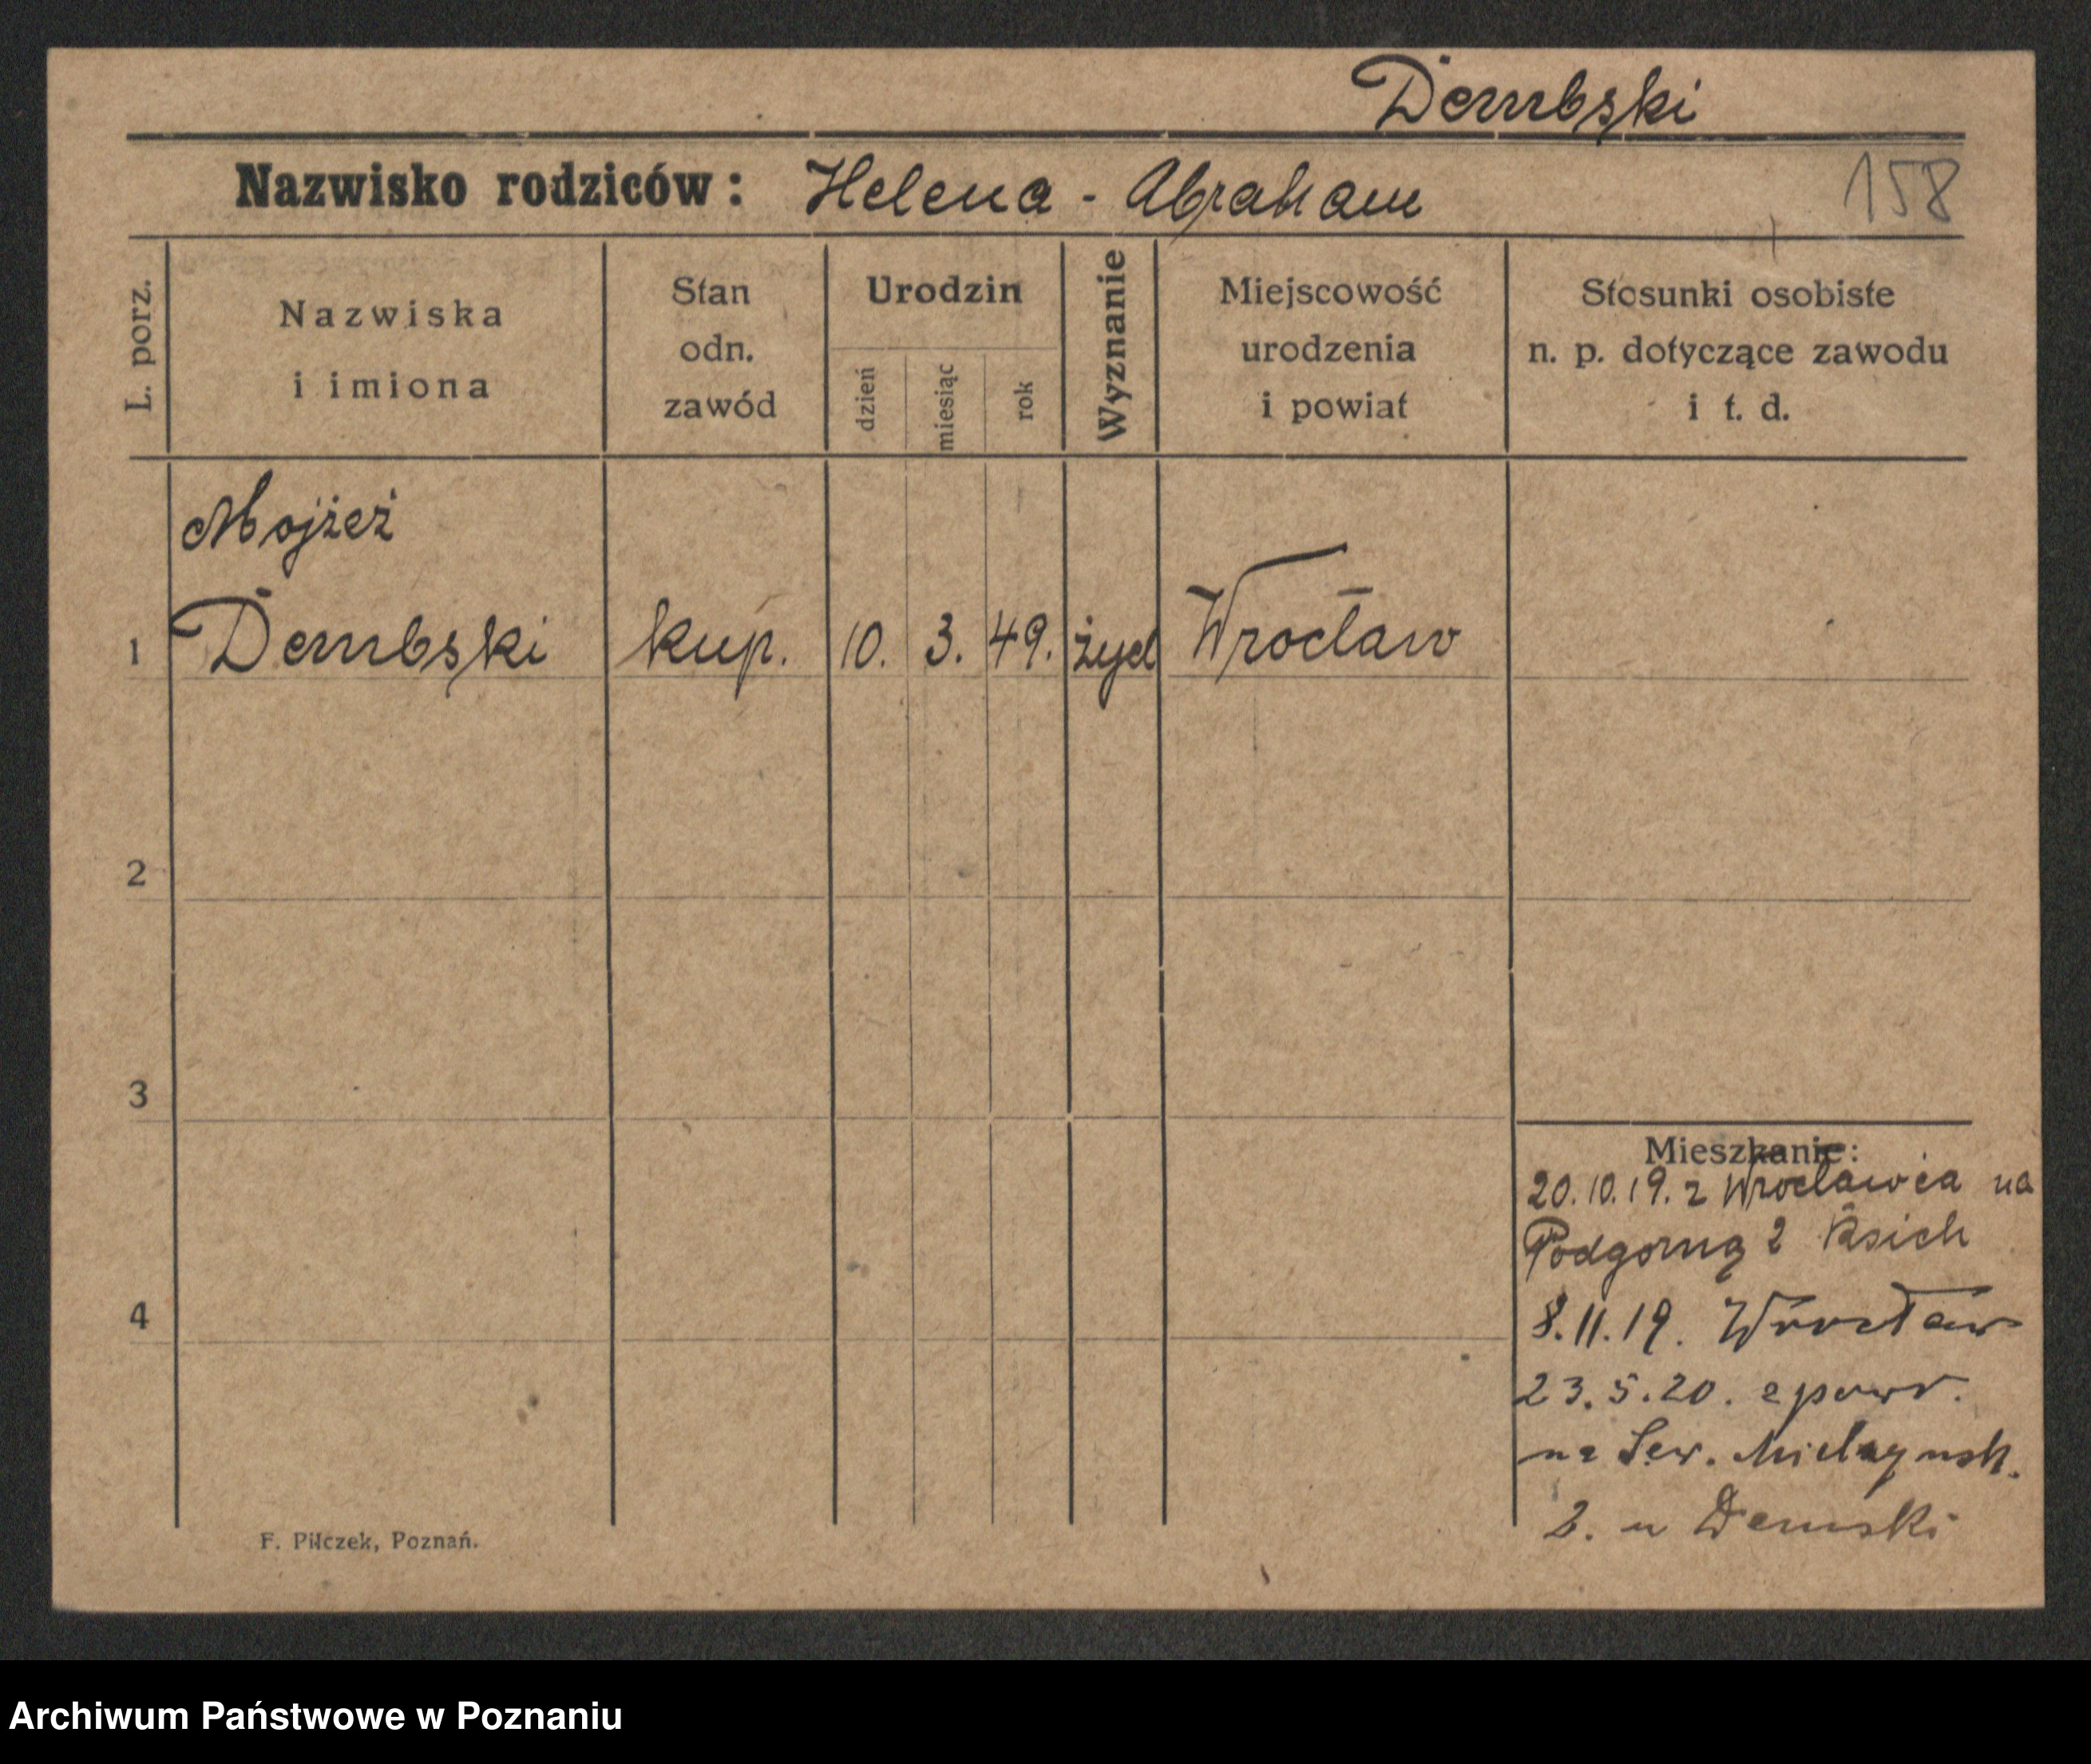 Dembski
Nazwisko rodziców: Helena - Abraham
158
L. porz.
Nazwiska
i imiona
Stan
odn.
zawód
Urodzin
dzień
miesiąc
rok
Wyznanie
Miejscowość
urodzenia
i powiat
Stosunki osobiste
n. p. dotyczące zawodu
i t. d.
Mojżeż
1 Dembski kup. 10. 3. 49. żyd Wrocław
2
3
4
Mieszkanie:
20.10.19. z Wrocławia na
Podgorną 2
8.11.19. Wrocław
23.5.20. z powr.
na Sew. Mielzynsk.
2. u Demski
F. Piłczek, Poznań.
Archiwum Państwowe w Poznaniu